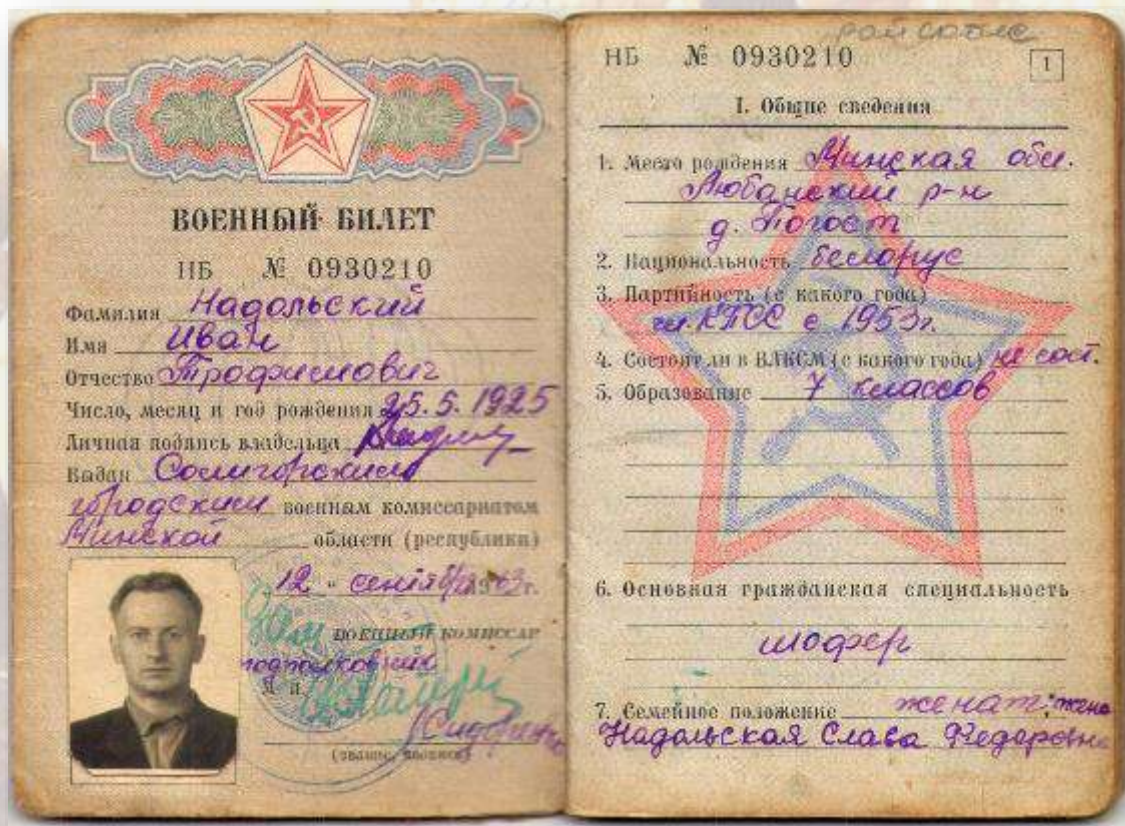 ВОЕННЫЙ БИЛЕТ
НБ № 0930210
Фамилия Надольский
Имя Иван
Отчество Трофимович
Число, месяц и год рождения 25.5.1925
Личная подпись владельца
Выдан Солигорским
городским военным комиссариатом
Минской области (республики)
"12" сентября 1963г.
Зам ВОЕННЫЙ КОМИССАР
подполковник
М. п.
(звание, подпись)
райсобес
НБ № 0930210
1
I. Общие сведения
1. Место рождения Минская обл.
Любанский р-н
д. Погост
2. Национальность белорус
3. Партийность (с какого года)
чл. КПСС с 1953г.
4. Состоял ли в ВЛКСМ (с какого года) не сост.
5. Образование 7 классов
6. Основная гражданская специальность
шофер
7. Семейное положение женат: жена
Надольская Слава Федоровна